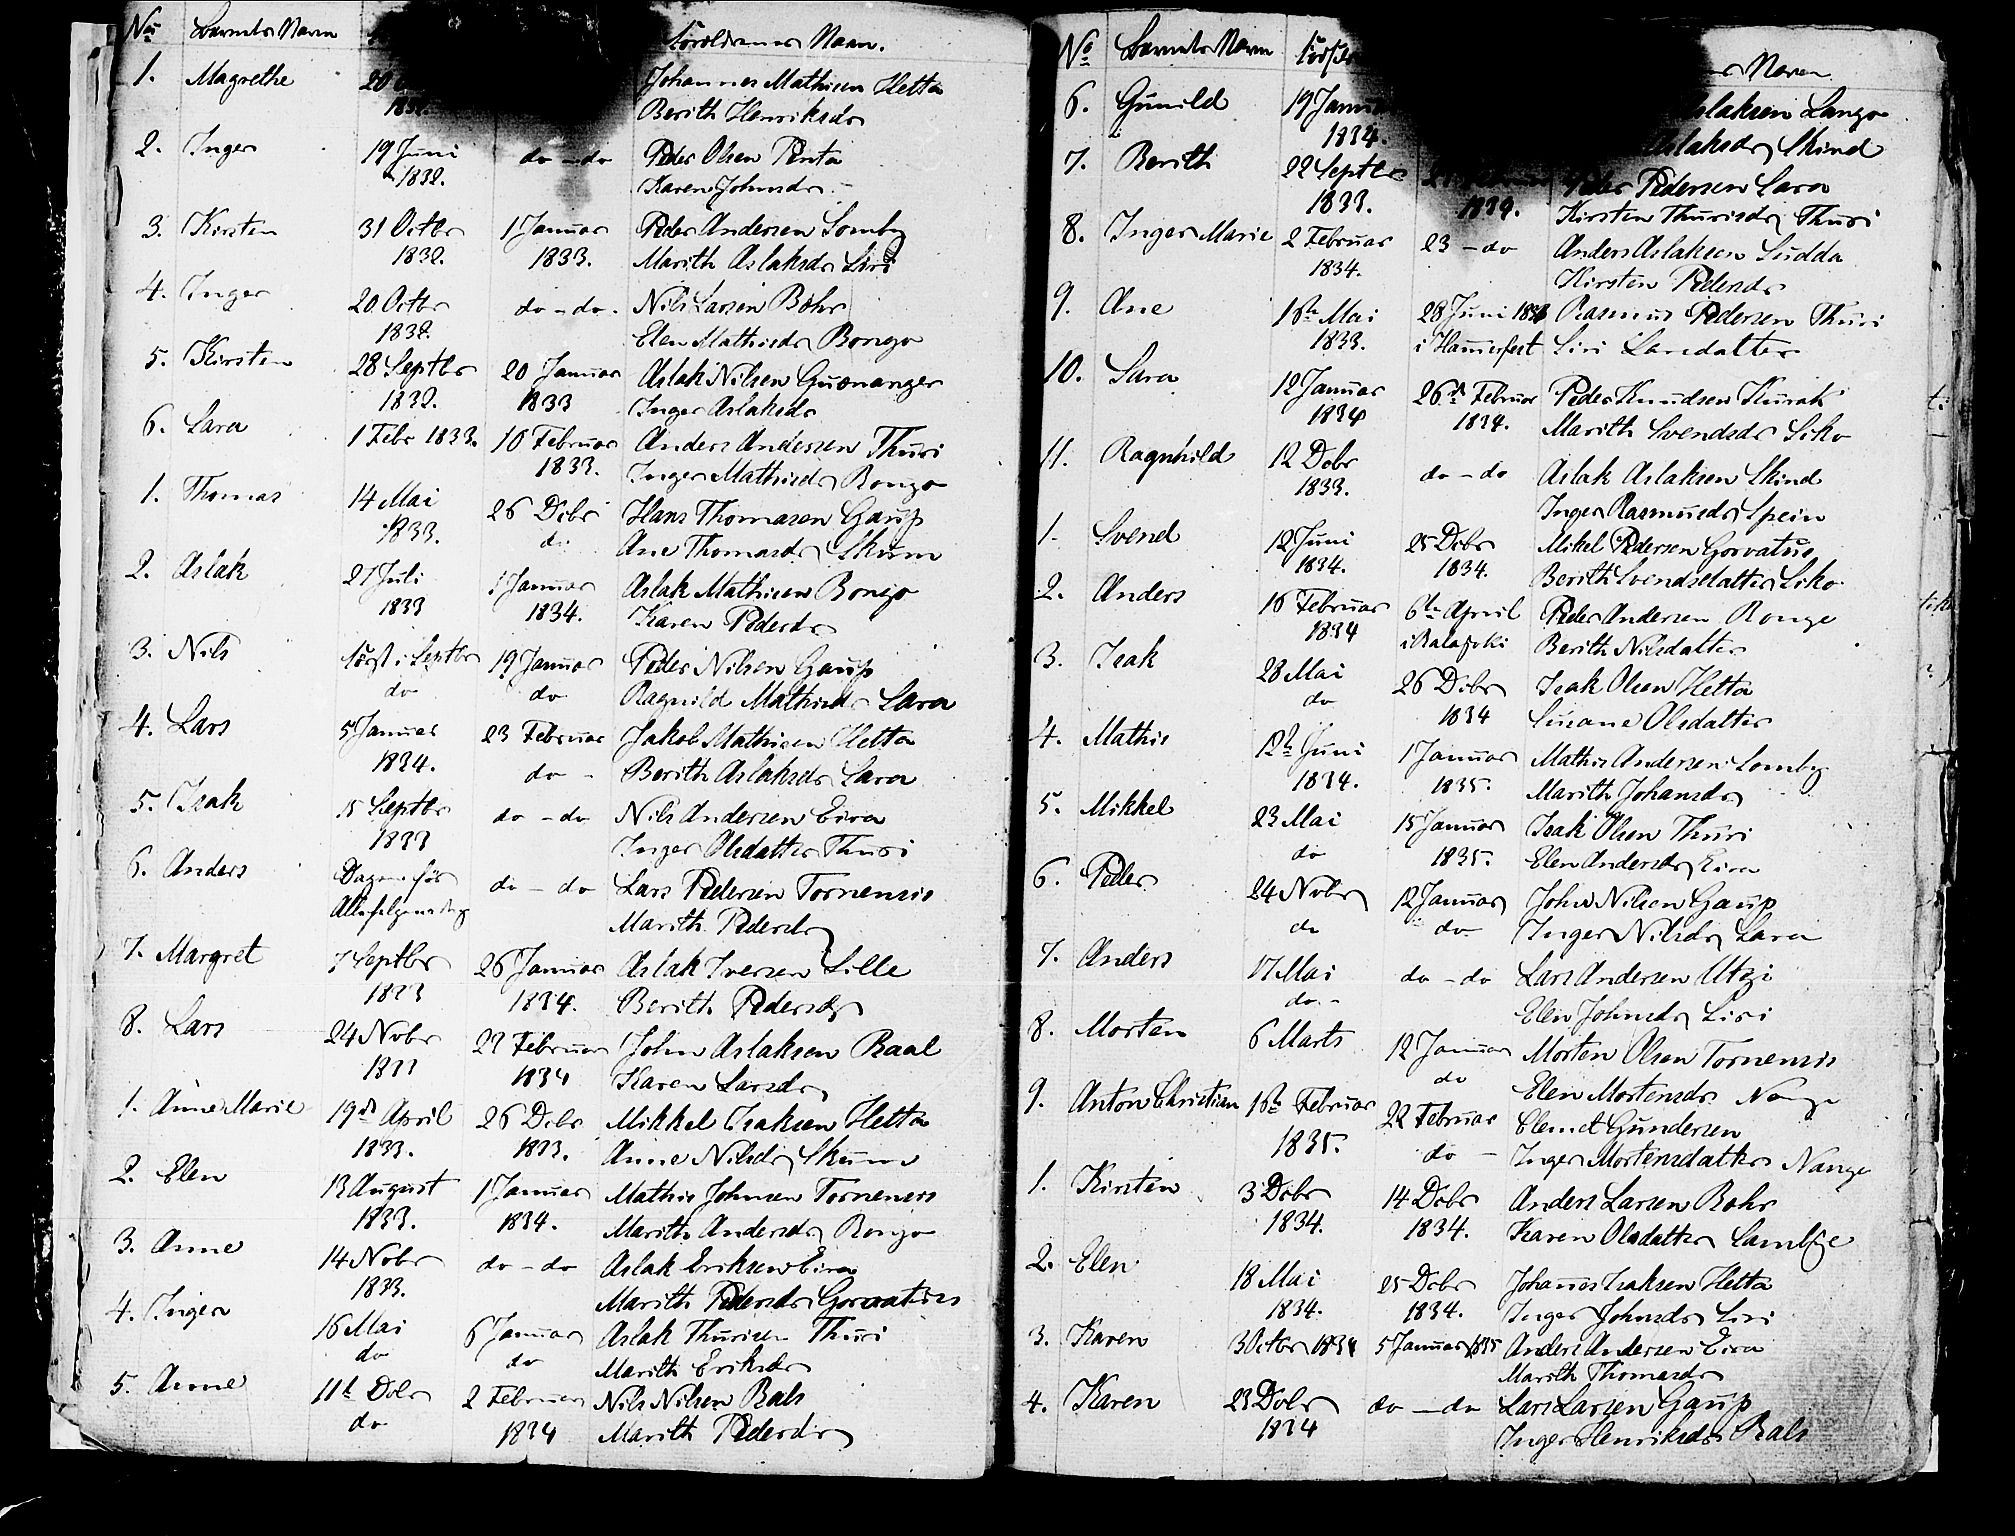 No Barnets Navn Forældrenes Navn.
1. Magrethe 20 Johannes Mathisen Hetta
1832. Berith Henriksdr
2. Inger 19 Juni do - do Peder Olsen Penta
1832. Karen Johnsdr.
3. Kirsten 31 Octbr 1 Januar Peder Andersen Somby
1832. 1833. Marith Aslaksdr Siri
4. Inger 20 Octbr do - do. Nils Larsen Bohr
1832. Elen Mathisdr Bongo
5. Kirsten 28 Septbr 20 Januar Aslak Nilsen Guonanger
1832. 1833 Inger Aslaksdr
6. Sara 1 Febr 1833. 10 Februar Anders Andersen Thuri
1833. Inger Mathisdr Bongo
1. Thomas 14 Mai 26 Debr Hans Thomasen Gaup
1833. do Ane Thomasdr Skum
2. Aslak 27 Juli 1 Januar Aslak Mathisen Bongo
1833 1834. Karen Pedersdr
3. Nils først i Septbr 19 Januar Peder Nilsen Gaup
do do Ragnild Mathisdr Sara
4. Lars 5 Januar 23 Februar Jakob Mathisen Hetta
1834. do - Berith Aslaksdr Sara
5. Isak 15 Septbr do - do Nils Andersen Eira
1833 Inger Olsdatter Thuri
6. Anders Dagen før do - do Lars Pedersen Tornensis
Allehelgensdag Marith Pedersdr
7. Margret 7 Septbr 26 Januar Aslak Iversen Lille
1833 1834. Berith Pedersdr
8. Lars 24 Nobr 27 Februar John Aslaksen Baal
1833 1834 Karen Larsdr
1. Anne Marie 19de April 26 Debr Mikkel Isaksen Hetta
1833. 1833. Anne Nilsdr Skum
2. Elen 13 August 1 Januar Mathis Johnsen Tornensis
1833. 1834. Marith Andersdr Bongo
3. Anne 14 Nobr do - do Aslak Eriksen Eira
1833. Marith Pedersdr Gorvatus
4. Inger 16 Mai 6 Januar Aslak Thurisen Thuri
do do Marith Eriksdr
5. Anne 11te Debr 2 Februar Nils Nilsen Bals
do 1834 Marith Pedersdr
No Barnets Navn Navn
6. Gunild 19 Januar Aslaksen Lango
1834. Aslaksdr Skind
7. Berith 22 Septbr Peder Pedersen Sara
1833. 1834. Kirsten Thurisdr Thuri
8. Inger Marie 2 Februar 23 - do Anders Aslaksen Sudda
1834. Kirsten Pedersdr
9. Ane 18de Mai 28 Juni Rasmus Pedersen Thuri
1833. i Hammerfest Siri Larsdatter
10. Sara 12 Januar 26de Februar Peder Knudsen Kurak
1834 1834. Marith Svendsdr Siko
11. Ragnhild 12 Debr do - do Aslak Aslaksen Skind
1833. Inger Rasmusdr Spein
1. Svend 12 Juni 25 Debr Mikel Pedersen Gorvatus
1834. 1834. Berith Svendsdatter Siko
2. Anders 16 Februar 6te April Peder Andersen Ronge
1834 Berith Nilsdatter
3. Isak 28 Mai 26 Debr Isak Olsen Hetta
do 1834 Susane Olsdatter
4. Mathis 12te Juni 1 Januar Mathis Andersen Somby
1834. 1835. Marith Johansdr
5. Mikkel 23 Mai 15 Januar Isak Olsen Thuri
do 1835. Elen Andersdr Eira
6. Peder 24 Nobr 12 Januar John Nilsen Gaup
do do Inger Nilsdr Sara
7. Anders 17 Mai do - do Lars Andersen Utzi
do - Elen Johnsdr Siri
8. Morten 6 Marts 12 Januar Morten Olsen Tornensis
do Elen Mortensdr Nange
9. Anton Christian 16de Februar 22 Februar Clemet Gundersen
1835. do - Inger Mortensdatter Nange
1. Kirsten 3 Debr 14 Debr Anders Larsen Bohr
1834. 1834. Karen Olsdatter Sambye
2. Elen 18 Mai 25 Debr Johannes Isaksen Hetta
1834. 1834. Inger Johnsdr Siri
3. Karen 3 Octbr 1834 5 Januar 1835 Anders Andersen Eira
Marith Thomasdr
4. Karen 23 Debr do - do Lars Larsen Gaup
1834 Inger Henriksdr Bals